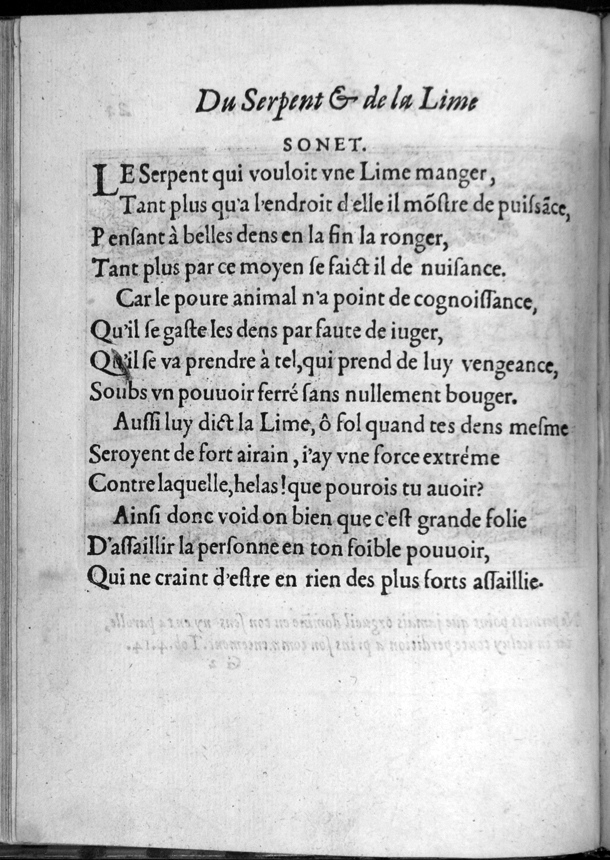 Du Serpent & de la Lime
SONET.
LE Serpent qui vouloit vne Lime manger,
Tant plus qu'a l'endroit d'elle il mõſtre de puiſsãce,
Penſant à belles dens en la fin la ronger,
Tant plus par ce moyen ſe faict il de nuiſance.
Car le poure animal n'a point de cognoiſſance,
Qu'il ſe gaſte les dens par faute de iuger,
Qu'il ſe va prendre à tel, qui prend de luy vengeance,
Soubs vn pouuoir ferré ſans nullement bouger.
Auſſi luy dict la Lime, ô fol quand tes dens meſme
Seroyent de fort airain, i'ay vne force extréme
Contre laquelle, helas! que pourois tu auoir?
Ainſi donc void on bien que c'eſt grande folie
D'aſſaillir la perſonne en ton foible pouuoir,
Qui ne craint d'eſtre en rien des plus forts aſſaillie.